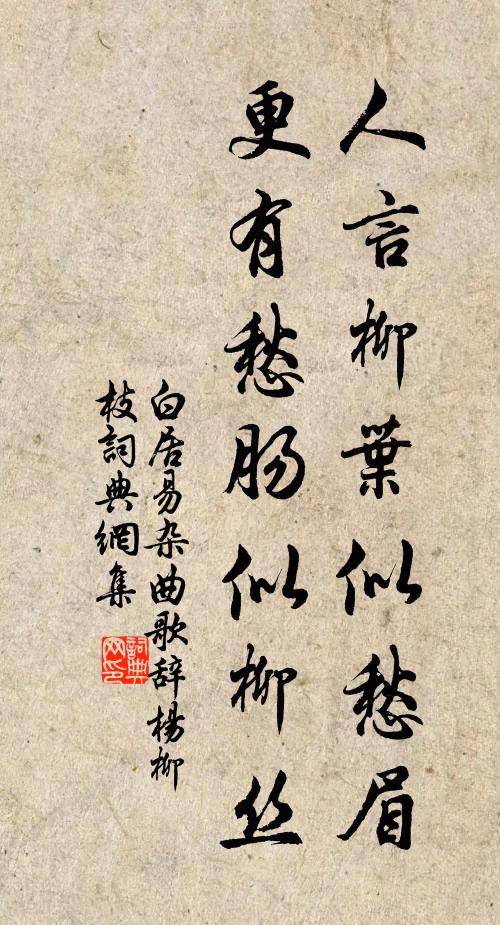 人言柳葉似愁眉
更有愁肠似柳丝
白居易杂曲歌辞楊柳
枝詞典網集
詞典
网印